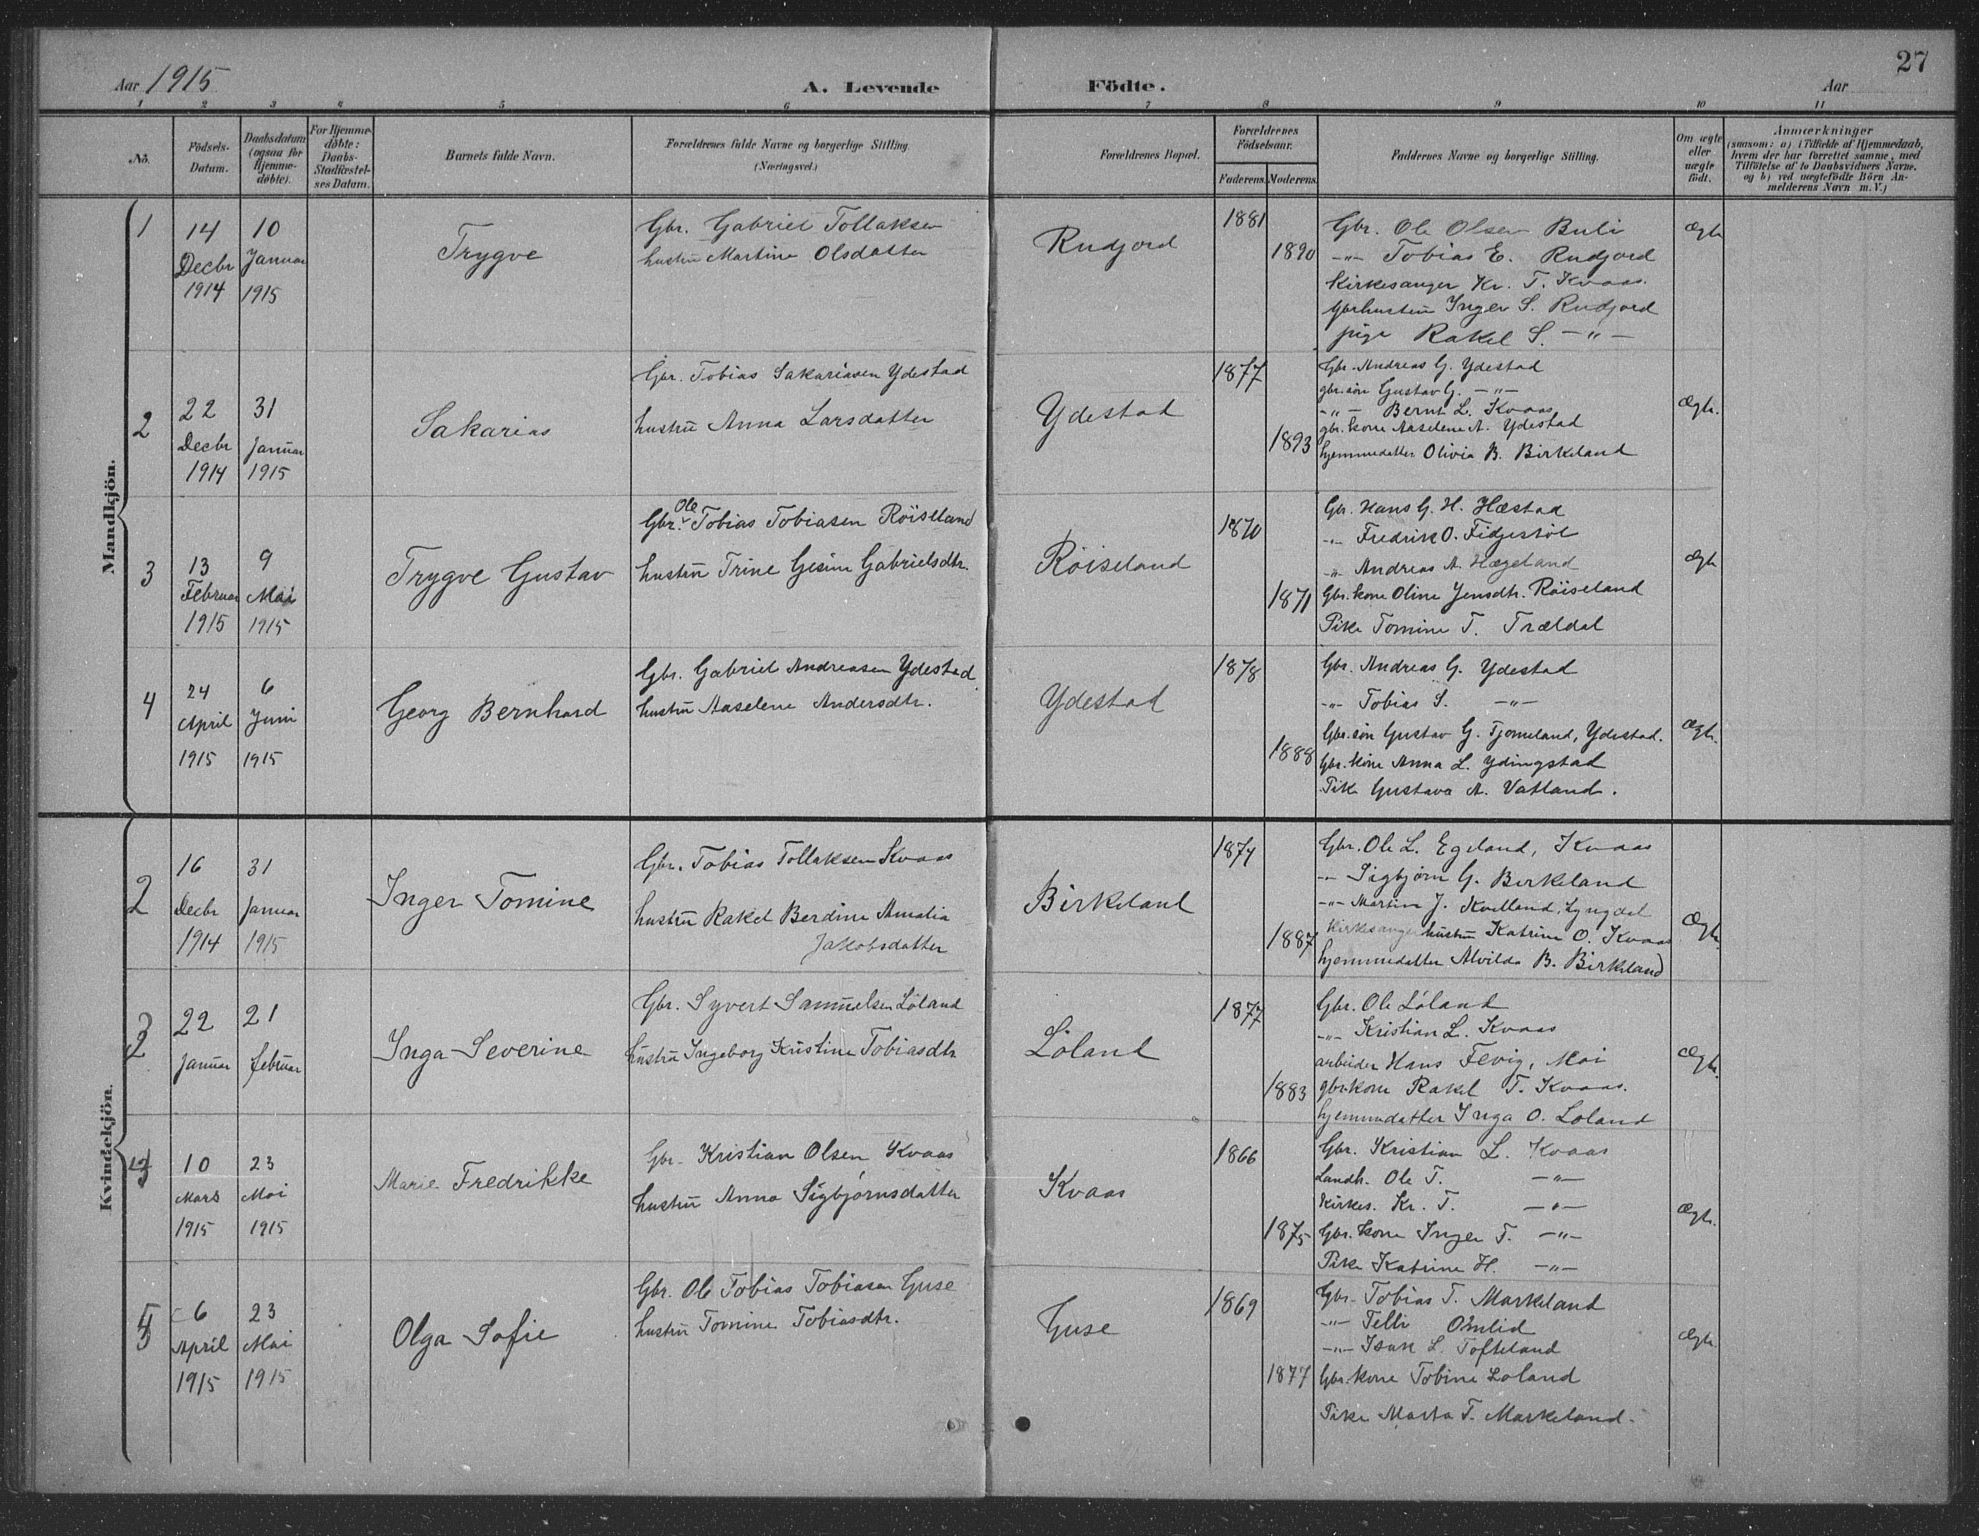 27
Aar 1915
A. Levende Födte.
Aar
1 2 3 4 5 6 7 8 9 10 11
No.
Födsels-Datum.
Daabsdatum (ogsaa for Hjemme-döbte).
For Hjemme-döbte: Daabs-Stadfæstel-ses Datum.
Barnets fulde Navn.
Forældrenes fulde Navne og borgerlige Stilling. (Næringsvei.)
Forældrenes Bopæl.
Forældrenes Födselsaar.
Faderens. Moderens.
Faddernes Navne og borgerlige Stilling.
Om ægte eller uægte födt.
Anmærkninger
(saasom: a) i Tilfælde af Hjemmedaab, hvem der har forrettet samme, med Tilföielse af to Daabsvidners Navne. og b) ved uægtefödte Börn An-melderens Navn m. V.)
Mandkjön.
1
14 Decbr 1914
10 Januar 1915
Trygve
Gbr. Gabriel Tollaksen
hustru Martine Olsdatter
Rudjord
1881
1890
Gbr. Ole Olsen Buli
-"- Tobias E. Rudjord
Kirkesanger Kr. T. Kvaas.
gbrhustru Inger S. Rudjord
pige Rakel S. -"-
Ægte
2
22 Decbr 1914
31 Januar 1915
Sakarias
Gbr. Tobias Sakariasen Ydestad
hustru Anna Larsdatter
Ydestad
1877
1893
Gbr. Andreas G. Ydestad
gbr.søn Gustav G. -"-
-"- Bernt L. Kvaas
gbr. kone Aaselene A. Ydestad
hjemmedatter Olivia B. Birkeland
Ægte.
3
13 Februar 1915
9 Mai 1915
Trygve Gustav
Gbr. Ole Tobias Tobiasen Röiseland
hustru Trine Gesine Gabrielsdtr.
Röiseland
1870
1871
Gbr. Hans G. H. Hæstad
-"- Fredrik O. Fidjestöl
-"- Andreas A. Hægeland
Gbr. kone Oline Jensdtr. Röiseland
Pike Tomine T. Trældal
Ægte
4
24 April 1915
6 Juni 1915
Georg Bernhard
Gbr. Gabriel Andreasen Ydestad
hustru Aaselene Andersdtr.
Ydestad
1878
1888
Gbr. Andreas G. Ydestad
-"- Tobias S. -"-
Gbr. søn Gustav G. Tjomeland, Ydestad.
Gbr. kone Anna L. Ydingstad
Pike Gustava A. Vatland.
Ægte.
Kvindekjön.
2
16 Decbr 1914
31 Januar 1915
Inger Tomine
Gbr. Tobias Tollaksen Kvaas
hustru Rakel Berdine Amalia
Jakobsdatter
Birkeland
1874
1887
Gbr. Ole L. Egeland, Kvaas
-"- Sigbjørn G. Birkeland
-"- Martin J. Kvelland, Lyngdal
Kirkesangerhustru Katrine O. Kvaas
hjemmedatter Alvilda B. Birkeland
Ægte.
3
22 Januar
21 februar
Inga Severine
Gbr. Syvert Samuelsen Löland
hustru Ingeborg Kristine Tobiasdtr
Löland
1877
1883
Gbr. Ole Löland
-"- Kristian L. Kvaas
arbeider Hans Fevig, Moi
gbrkone Rakel T. Kvaas.
hjemmedatter Inga O. Loland
Ægte.
4
10 Mars 1915
23 Mai 1915
Marie Fredrikke
Gbr. Kristian Olsen Kvaas
hustru Anna Sigbjørnsdatter
Kvaas
1866
1875
Gbr. Kristian L. Kvaas
Landh. Ole T. -"-
Kirkes. Kr. T. -"-
Gbr. kone Inger T. -"-
Pike Katrine H. -"-
Ægte.
5
6 April 1915
23 Mai 1915
Olga Sofie
Gbr. Ole Tobias Tobiasen Guse
hustru Tomine Tobiasdtr.
Guse
1869
1877
Gbr. Tobias T. Markeland
-"- Tellev Omlid
-"- Isak L. Tofteland
Gbr. kone Tobine Loland
Pike Marta T. Markeland.
Ægte.